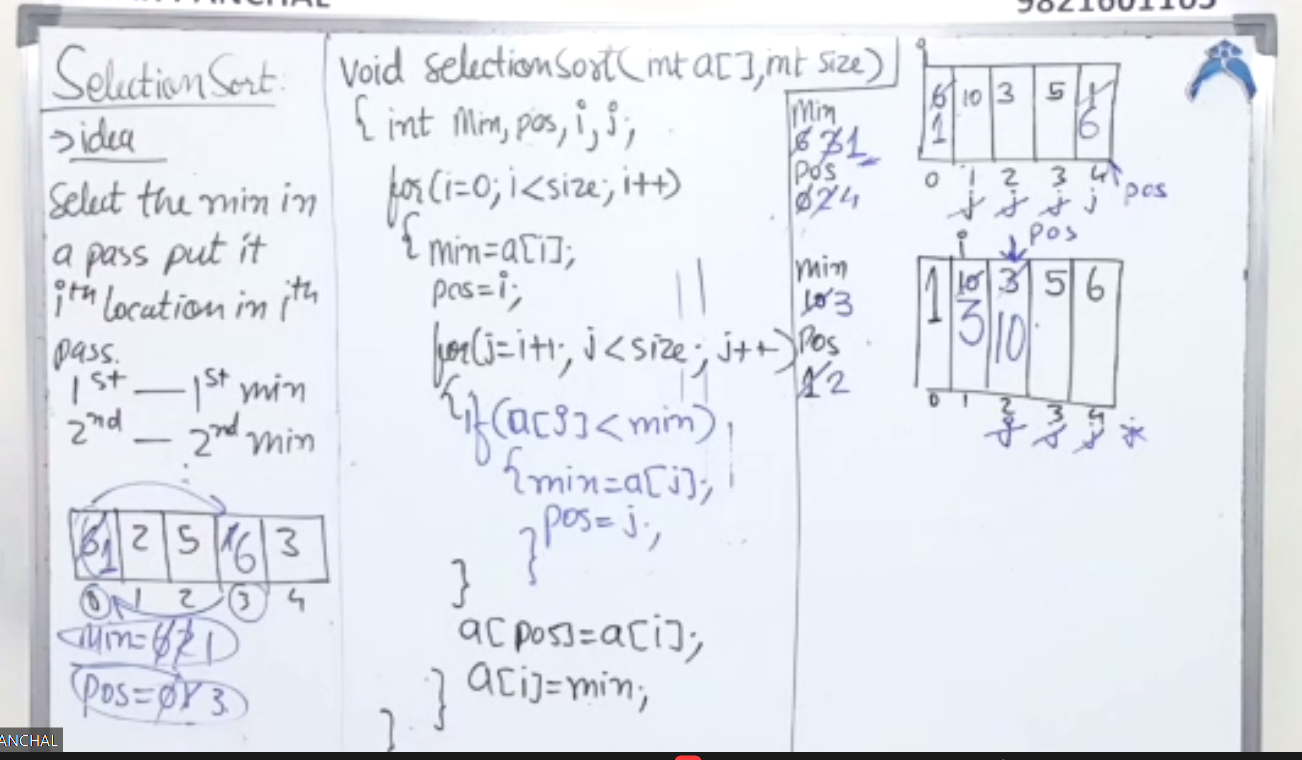 PANCHAL
9821601163
Selection Sort:
→ idea
Select the min in
a pass put it
ith location in ith
pass.
1st — 1st min
2nd — 2nd min
:
6 1 2 5 1 6 3
0 1 2 3 4
Min=6 2 1
Pos=0 1 3
void selectionSort(int a[], int size)
{ int Min, pos, i, j;
for(i=0; i<size; i++)
{ min=a[i];
pos=i;
for(j=i+1; j<size; j++)
{ if(a[j]<min)
{ min=a[j];
pos=j;
}
}
a[pos]=a[i];
a[i]=min;
}
}
Min
6 3 1
Pos
0 2 4
i
6 10 3 5 1
1 6
0 1 2 3 4
j j j j pos
min
10 3
Pos
1 2
i pos
1 10 3 5 6
3 10
0 1 2 3 4
j j j j
ANCHAL